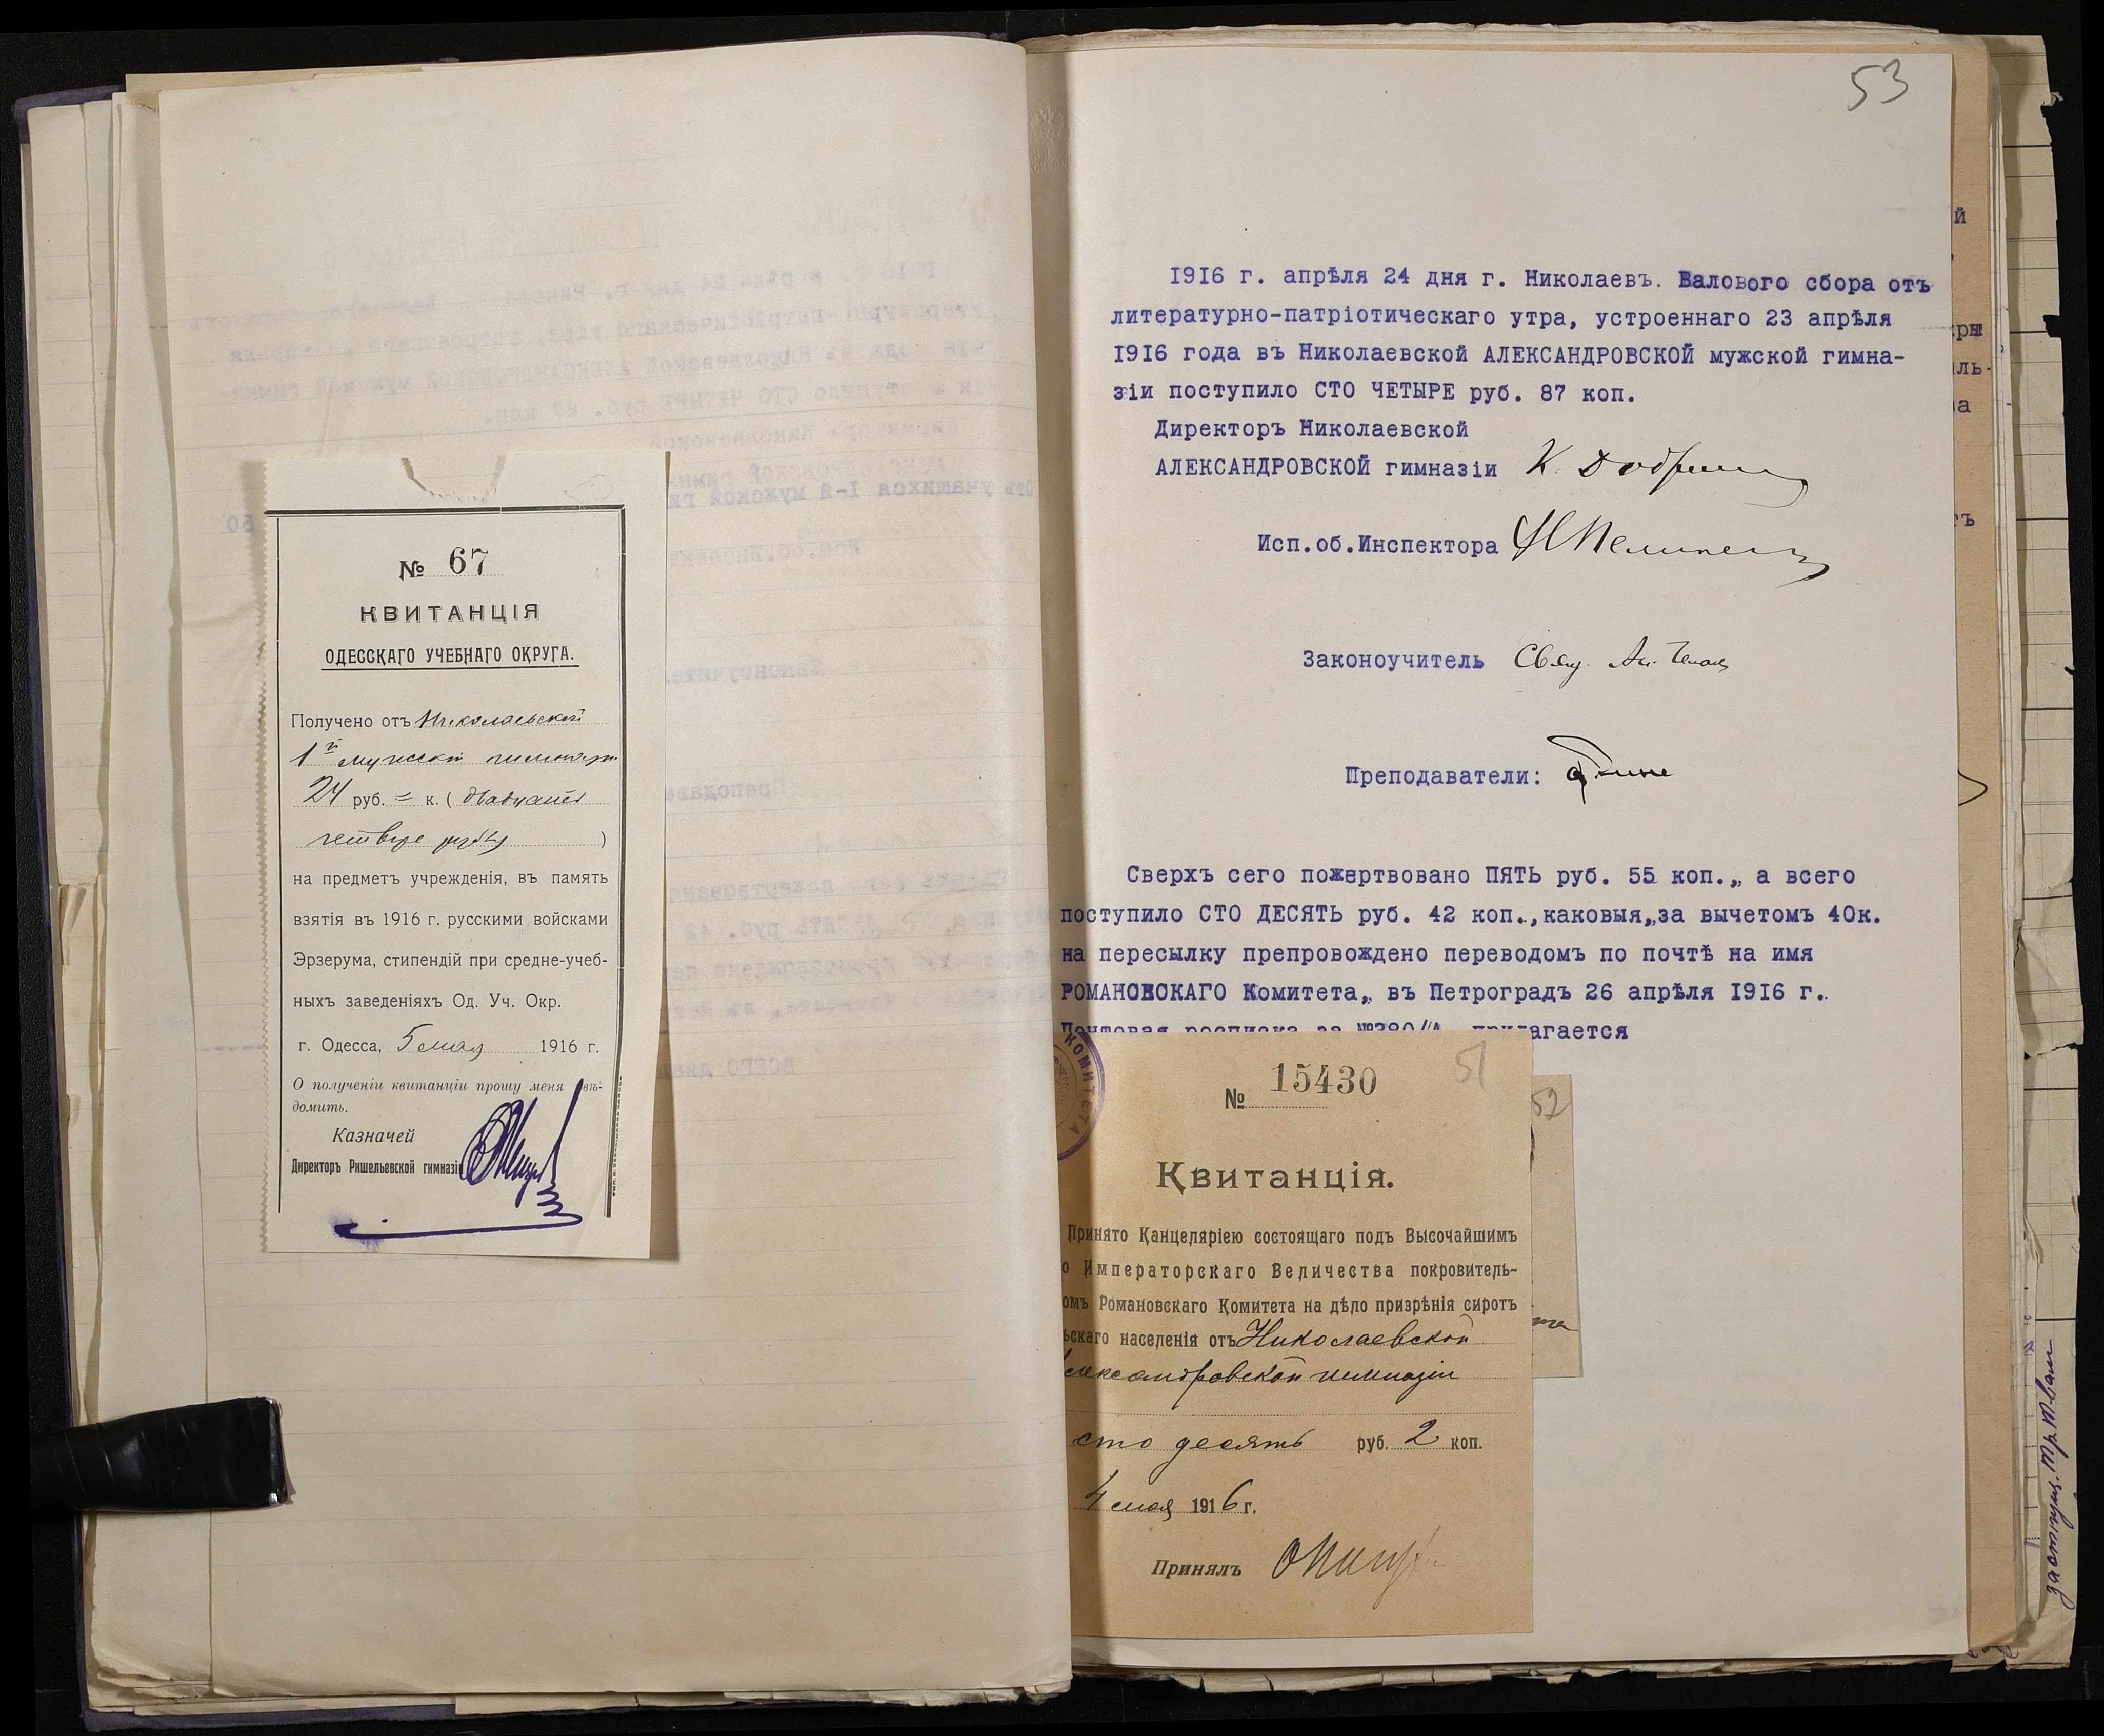 № 67
КВИТАНЦІЯ
ОДЕССКАГО УЧЕБНАГО ОКРУГА.
Получено отъ Николаевской
1й мужской гимназіи
24 руб. = к. (двадцать
четыре рубля)
на предметъ учрежденія, въ память
взятія въ 1916 г. русскими войсками
Эрзерума, стипендій при средне-учеб-
ныхъ заведеніяхъ Од. Уч. Окр.
г. Одесса, 5 мая 1916 г.
О полученіи квитанціи прошу меня увѣ-
домить.
Казначей
Директоръ Ришельевской гимназіи
53
1916 г. апрѣля 24 дня г. Николаевъ. Валового сбора отъ
литературно-патріотическаго утра, устроеннаго 23 апрѣля
1916 года въ Николаевской АЛЕКСАНДРОВСКОЙ мужской гимна-
зіи поступило СТО ЧЕТЫРЕ руб. 87 коп.
Директоръ Николаевской
АЛЕКСАНДРОВСКОЙ гимназіи К.
Исп.об.Инспектора
Законоучитель Свящ.
Преподаватели:
Сверхъ сего пожертвовано ПЯТЬ руб. 55 коп.,, а всего
поступило СТО ДЕСЯТЬ руб. 42 коп.,каковыя,,за вычетомъ 40к.
на пересылку препровождено переводомъ по почтѣ на имя
РОМАНОВСКАГО Комитета,, въ Петроградъ 26 апрѣля 1916 г.
Почтовая росписка за №380/А прилагается
КОМИТЕТА
51
52
№ 15430
Квитанція.
Принято Канцеляріею состоящаго подъ Высочайшимъ
о Императорскаго Величества покровитель-
омъ Романовскаго Комитета на дѣло призрѣнія сиротъ
ьскаго населенія отъ Николаевской
Александровской гимназіи
сто десять руб. 2 коп.
4 мая 1916 г.
Принялъ